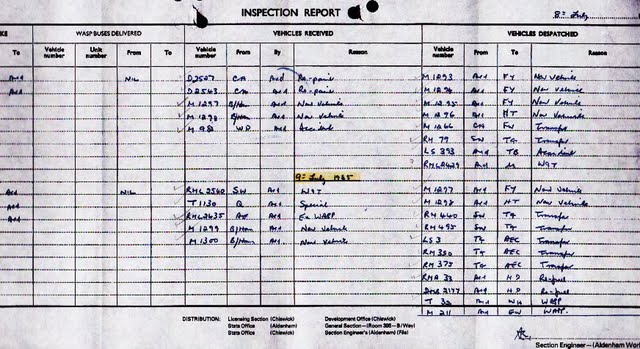 INSPECTION REPORT
8th July
KE WASP BUSES DELIVERED VEHICLES RECEIVED VEHICLES DESPATCHED
To Vehicle number Unit number From To Vehicle number From By Reason Vehicle number From To Reason
Ard NIL D2507 CA Ard Re-panic M 1293 Ard FY New Vehicle
Ard D2563 CA Ard Re-panic M 1294 Ard FY New Vehicle
M 1297 B/Hom Ard New Vehicle M 1295 Ard FY New Vehicle
M 1298 B/Hom Ard New Vehicle M 1296 Ard HT New Vehicle
M 98 WD Ard Accident M 1266 FW Transfer
RM 79 SW TA Transfer
LS 393 Ard TB Accident
RMLA2629 Ard W9T
9th July 1965
Ard NIL RML2560 SW Ard W9T M 1297 Ard FY New Vehicle
Ard T 1130 Q Ard Special M 1298 Ard HT New Vehicle
Ard RML2635 AF Ard Ex WASP RM 440 SW TA Transfer
M 1299 B/Hom Ard New Vehicle RM 495 SW TA Transfer
M 1300 B/Hom Ard New Vehicle LS 3 TA AEC Transfer
RM 350 TA AEC Transfer
RM 373 TA AEC Transfer
RMA 33 Ard HD Re-fuel
2177 Ard HD Re-fuel
T 32 Ard WH WASP
M 211 Ard GW WASP
DISTRIBUTION: Licensing Section (Chiswick) Development Office (Chiswick)
Stats Office (Aldenham) General Section - (Room 305 - B/Way)
Stats Office (Chiswick) Section Engineer's (Aldenham) (File)
Section Engineer-(Aldenham Wor